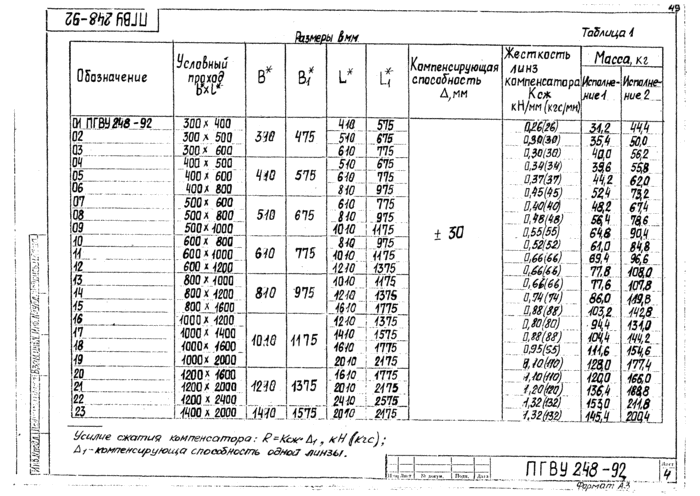 ПГВУ 248-92
49
Размеры в мм.
Таблица 1
Обозначение | Условный проход B×L* | B* | B1* | L* | L1* | Компенсирующая способность Δ, мм | Жесткость линз компенсатора Ксж кН/мм (кгс/мм) | Масса, кг Исполне-ние 1 | Исполне-ние 2
01 ПГВУ 248-92 | 300 × 400 | 310 | 475 | 410 | 575 | ± 30 | 0,26(26) | 31,2 | 44,4
02 | 300 × 500 | 510 | 675 | 0,30(30) | 35,4 | 50,0
03 | 300 × 600 | 610 | 775 | 0,30(30) | 40,0 | 56,2
04 | 400 × 500 | 410 | 575 | 510 | 675 | 0,34(34) | 39,6 | 55,8
05 | 400 × 600 | 610 | 775 | 0,37(37) | 44,2 | 62,0
06 | 400 × 800 | 810 | 975 | 0,45(45) | 52,4 | 73,2
07 | 500 × 600 | 510 | 675 | 610 | 775 | 0,40(40) | 48,2 | 67,4
08 | 500 × 800 | 810 | 975 | 0,48(48) | 56,4 | 78,6
09 | 500 × 1000 | 1010 | 1175 | 0,55(55) | 64,8 | 90,4
10 | 600 × 800 | 610 | 775 | 810 | 975 | 0,52(52) | 61,0 | 84,8
11 | 600 × 1000 | 1010 | 1175 | 0,66(66) | 69,4 | 96,6
12 | 600 × 1200 | 1210 | 1375 | 0,66(66) | 77,8 | 108,0
13 | 800 × 1000 | 810 | 975 | 1010 | 1175 | 0,66(66) | 77,6 | 107,8
14 | 800 × 1200 | 1210 | 1375 | 0,74(74) | 86,0 | 119,8
15 | 800 × 1600 | 1610 | 1775 | 0,88(88) | 103,2 | 142,8
16 | 1000 × 1200 | 1010 | 1175 | 1210 | 1375 | 0,80(80) | 94,4 | 131,0
17 | 1000 × 1400 | 1410 | 1575 | 0,88(88) | 104,4 | 144,2
18 | 1000 × 1600 | 1610 | 1775 | 0,95(55) | 111,6 | 154,6
19 | 1000 × 2000 | 2010 | 2175 | (110) | 128,0 | 177,4
20 | 1200 × 1600 | 1210 | 1375 | 1610 | 1775 | 1,10(110) | 120,0 | 166,0
21 | 1200 × 2000 | 2010 | 2175 | 1,20(120) | 136,4 | 188,8
22 | 1200 × 2400 | 2410 | 2575 | 1,32(132) | 153,0 | 211,8
23 | 1400 × 2000 | 1410 | 1575 | 2010 | 2175 | 1,32(132) | 145,4 | 200,4
Усилие сжатия компенсатора: R = Ксж · Δ1, кН (кгс);
Δ1 - компенсирующа способность одной линзы.
Изм Лист № докум. Подп. Дата
ПГВУ 248-92
Лист
4
Формат А3